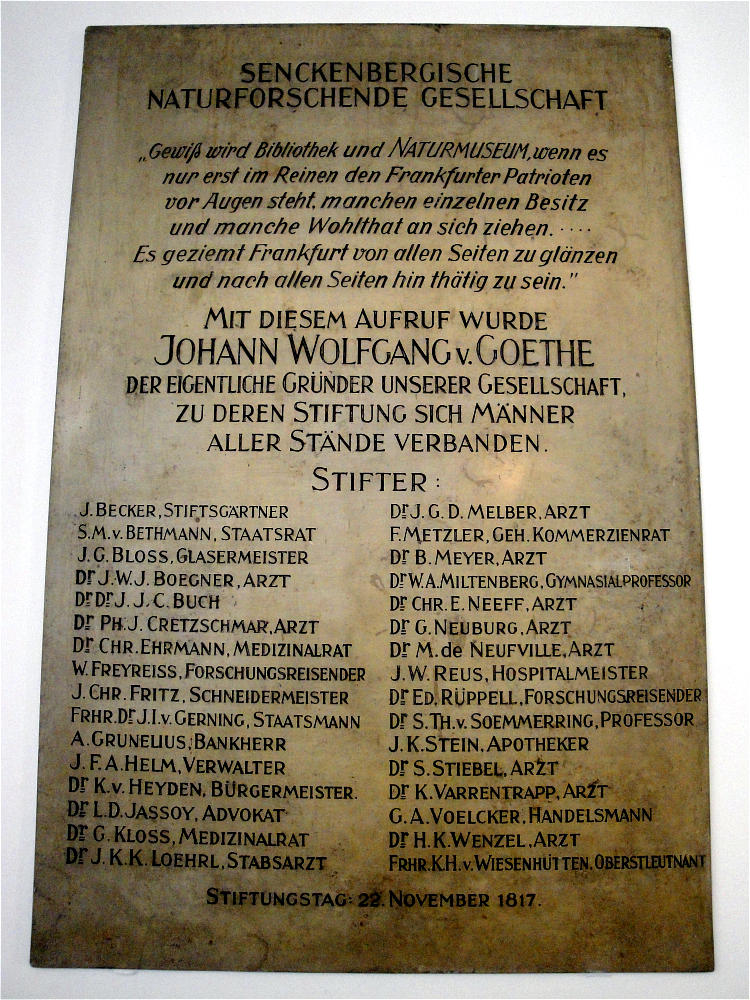 SENCKENBERGISCHE
NATURFORSCHENDE GESELLSCHAFT
„Gewiß wird Bibliothek und NATURMUSEUM, wenn es
nur erst im Reinen den Frankfurter Patrioten
vor Augen steht, manchen einzelnen Besitz
und manche Wohlthat an sich ziehen. ....
Es geziemt Frankfurt von allen Seiten zu glänzen
und nach allen Seiten hin thätig zu sein."
MIT DIESEM AUFRUF WURDE
JOHANN WOLFGANG v. GOETHE
DER EIGENTLICHE GRÜNDER UNSERER GESELLSCHAFT,
ZU DEREN STIFTUNG SICH MÄNNER
ALLER STÄNDE VERBANDEN.
STIFTER:
J. BECKER, STIFTSGÄRTNER
S.M. v. BETHMANN, STAATSRAT
J.G. BLOSS, GLASERMEISTER
Dr J.W.J. BOEGNER, ARZT
Dr Dr J.J.C. BUCH
Dr PH.J. CRETZSCHMAR, ARZT
Dr CHR. EHRMANN, MEDIZINALRAT
W. FREYREISS, FORSCHUNGSREISENDER
J. CHR. FRITZ, SCHNEIDERMEISTER
FRHR. Dr J.I. v. GERNING, STAATSMANN
A. GRUNELIUS, BANKHERR
J.F.A. HELM, VERWALTER
Dr K. v. HEYDEN, BÜRGERMEISTER.
Dr L.D. JASSOY, ADVOKAT
Dr G. KLOSS, MEDIZINALRAT
Dr J.K.K. LOEHRL, STABSARZT
Dr J.G.D. MELBER, ARZT
F. METZLER, GEH. KOMMERZIENRAT
Dr B. MEYER, ARZT
Dr W.A. MILTENBERG, GYMNASIALPROFESSOR
Dr CHR. E. NEEFF, ARZT
Dr G. NEUBURG, ARZT
Dr M. de NEUFVILLE, ARZT
J.W. REUS, HOSPITALMEISTER
Dr ED. RÜPPELL, FORSCHUNGSREISENDER
Dr S. TH. v. SOEMMERRING, PROFESSOR
J.K. STEIN, APOTHEKER
Dr S. STIEBEL, ARZT
Dr K. VARRENTRAPP, ARZT
G.A. VOELCKER, HANDELSMANN
Dr H.K. WENZEL, ARZT
FRHR. K.H. v. WIESENHÜTTEN, OBERSTLEUTNANT
STIFTUNGSTAG: 22. NOVEMBER 1817.